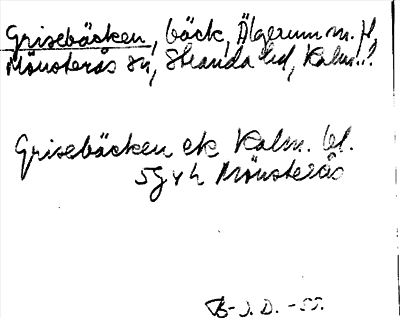 Grisebäcken, bäck, Älgerum m. fl,
Mönsterås sn, Stranda hd, Kalm. l.
Grisebäcken ek Kalm. bl.
5G v h Mönsterås
B-J. D. -55.